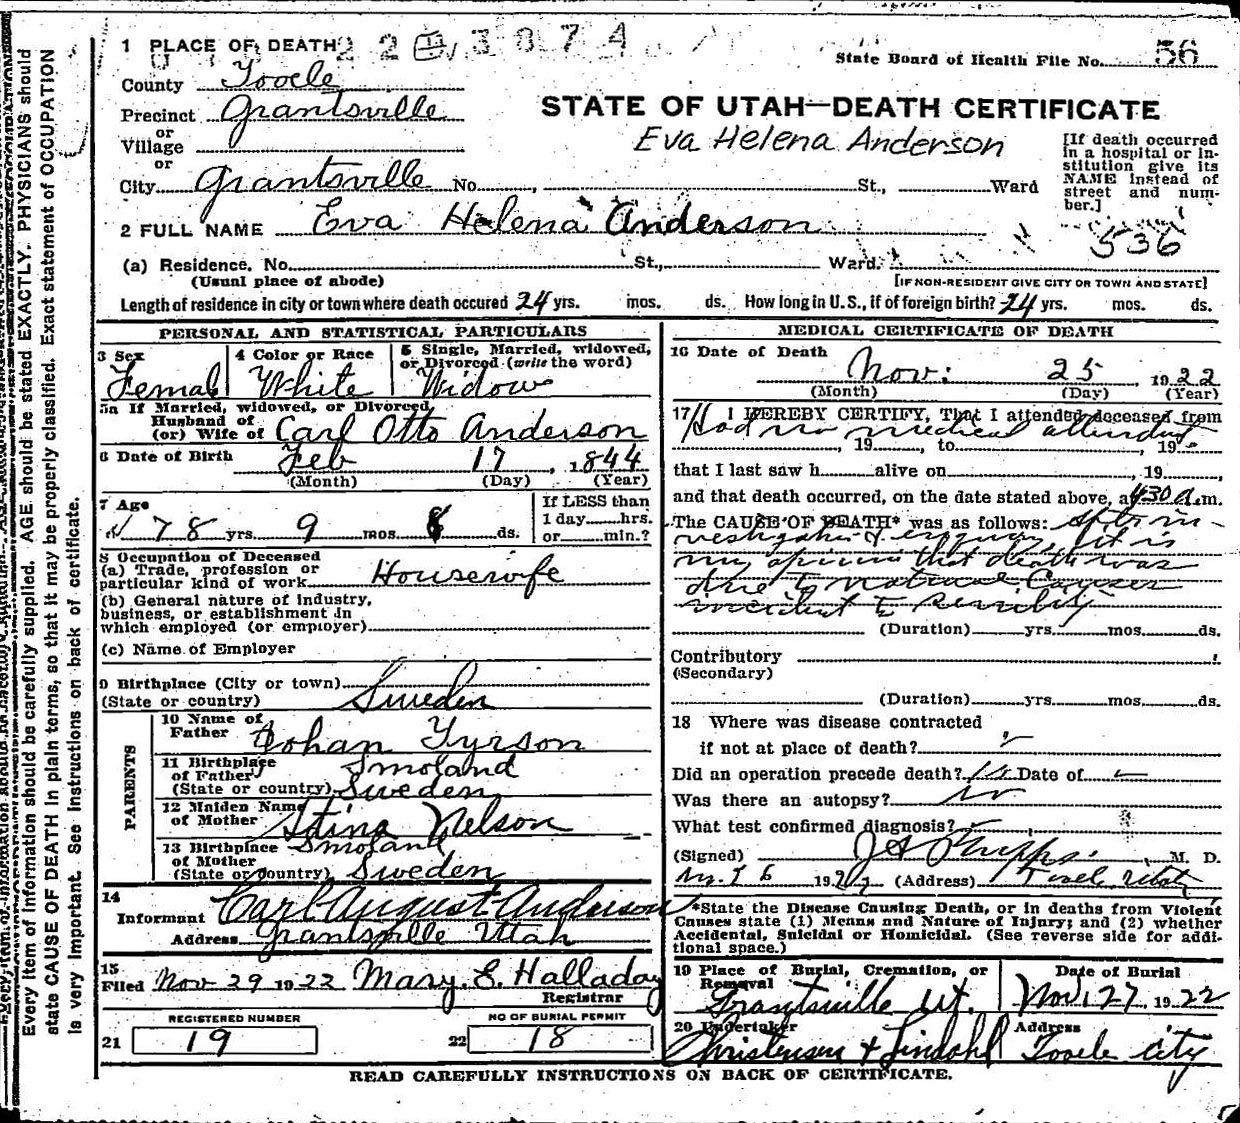 1 PLACE OF DEATH
22 3874
State Board of Health File No. 56
County Tooele
Precinct Grantsville
or
Village
or
City Grantsville No. , St., Ward
STATE OF UTAH—DEATH CERTIFICATE
Eva Helena Anderson
[If death occurred
in a hospital or in-
stitution give its
NAME instead of
street and num-
ber.]
2 FULL NAME Eva Helena Anderson
536
(a) Residence. No. St., Ward.
(Usual place of abode)
[IF NON-RESIDENT GIVE CITY OR TOWN AND STATE]
Length of residence in city or town where death occured 24 yrs. mos. ds. How long in U.S., if of foreign birth? 24 yrs. mos. ds.
PERSONAL AND STATISTICAL PARTICULARS
3 Sex
Femal
4 Color or Race
White
5 Single, Married, widowed,
or Divorced (write the word)
Widow
5a If Married, widowed, or Divorced
Husband of
(or) Wife of Carl Otto Anderson
6 Date of Birth Feb 17, 1844
(Month) (Day) (Year)
7 Age
78 yrs. 9 mos. 8 ds.
If LESS than
1 day hrs.
or min.?
8 Occupation of Deceased
(a) Trade, profession or
particular kind of work Housewife
(b) General nature of industry,
business, or establishment in
which employed (or employer)
(c) Name of Employer
9 Birthplace (City or town)
(State or country) Sweden
PARENTS
10 Name of
Father Johan Tyrson
11 Birthplace
of Father Smoland
(State or country) Sweden
12 Maiden Name
of Mother Stina Nelson
13 Birthplace Smoland
of Mother
(State or country) Sweden
14
Informant Carl August Anderson
Address Grantsville Utah
15
Filed Nov 29 1922 Mary E. Halladay
Registrar
REGISTERED NUMBER
21 19
NO OF BURIAL PERMIT
22 18
MEDICAL CERTIFICATE OF DEATH
16 Date of Death
Nov. 25, 1922
(Month) (Day) (Year)
17 I HEREBY CERTIFY, That I attended deceased from
Had no medical attendant
, 19 , to , 19
that I last saw h alive on , 19
and that death occurred, on the date stated above, at 430 a.m.
The CAUSE OF DEATH* was as follows: After in-
vestigation & enquiry, it is
my opinion that death was
due to natural Causes
incident to senility
(Duration) yrs. mos. ds.
Contributory
(Secondary)
(Duration) yrs. mos. ds.
18 Where was disease contracted
if not at place of death?
Did an operation precede death? No Date of
Was there an autopsy? no
What test confirmed diagnosis?
(Signed) J A Phipps, M. D.
1922 (Address) Tooele Utah
*State the Disease Causing Death, or in deaths from Violent
Causes state (1) Means and Nature of Injury; and (2) whether
Accidental, Suicidal or Homicidal. (See reverse side for addi-
tional space.)
19 Place of Burial, Cremation, or
Removal
Grantsville Ut.
Date of Burial
Nov. 27 1922
20 Undertaker
Christensen & Lindahl
Address
Tooele City
READ CAREFULLY INSTRUCTIONS ON BACK OF CERTIFICATE.
Every item of information should be carefully supplied. AGE should be stated EXACTLY. PHYSICIANS should
state CAUSE OF DEATH in plain terms, so that it may be properly classified. Exact statement of OCCUPATION
is very important. See instructions on back of certificate.